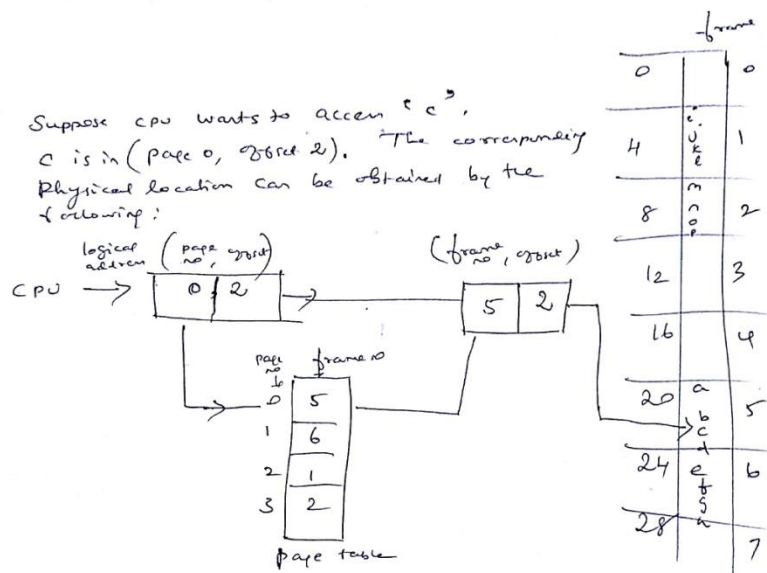 frame
Suppose cpu wants to access "c".
c is in (page 0, offset 2). The corresponding
Physical location can be obtained by the
following:
logical address (page no, offset)
CPU → 0 2
(frame no, offset)
5 2
page no
frame no
0 5
1 6
2 1
3 2
page table
0 0
4 i j k l 1
8 m n o p 2
12 3
16 4
20 a b c d 5
24 e f g h 6
28 7